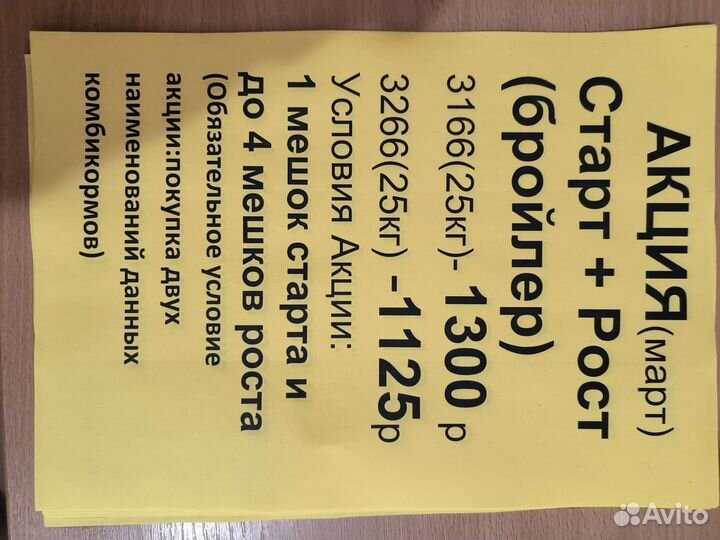 АКЦИЯ(март)
Старт + Рост
(бройлер)
3166(25кг)- 1300 р
3266(25кг) -1125р
Условия Акции:
1 мешок старта и
до 4 мешков роста
(Обязательное условие
акции:покупка двух
наименований данных
комбикормов)
Avito